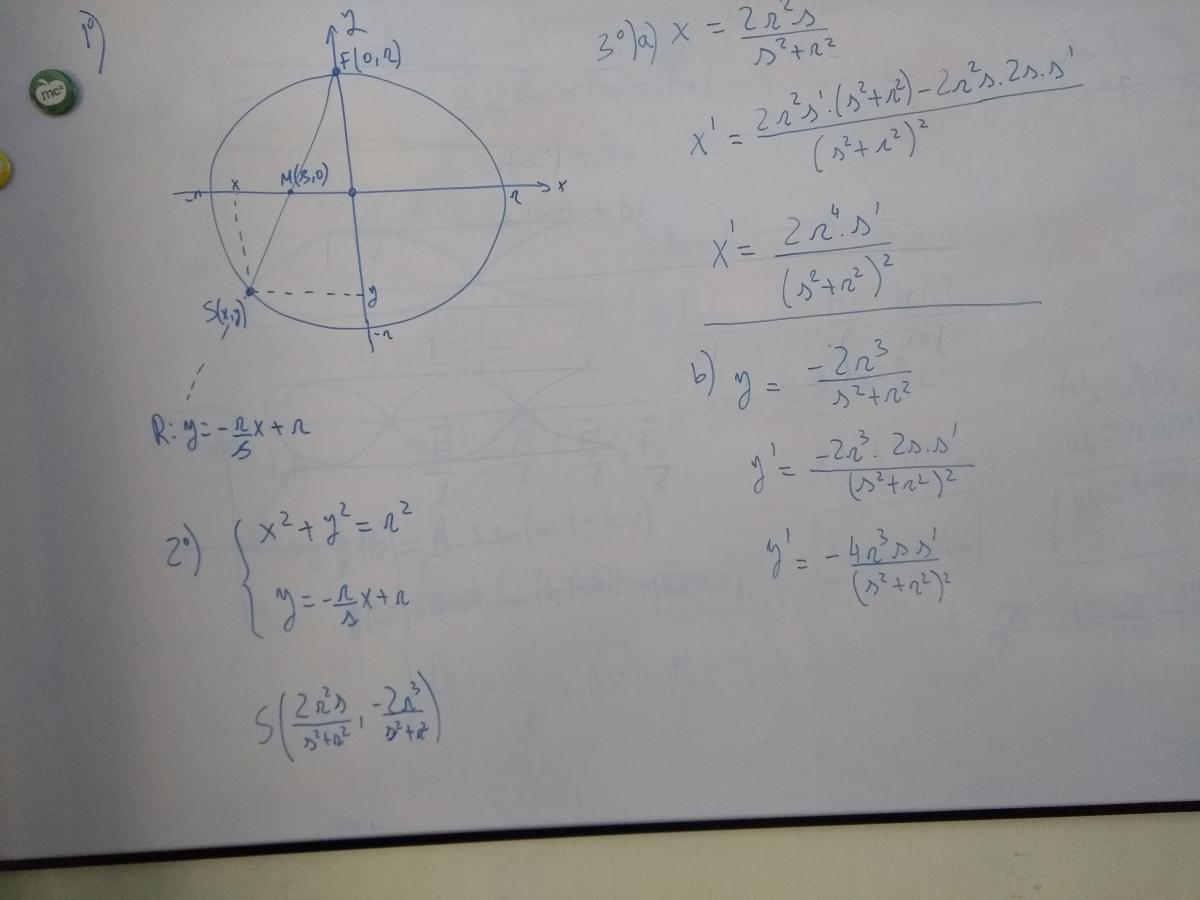 1º)
mc²
y
F(0,r)
M(s,0)
-r
x
r
x
y
S(x,y)
-r
R: y = -r/s x + r
2º) { x² + y² = r²
y = -r/s x + r
S(2r²s/(s²+r²), -2r³/(s²+r²))
3º)a) x = 2r²s/(s²+r²)
x' = (2r²s'·(s²+r²) - 2r²s·2s·s')/(s²+r²)²
x' = 2r⁴·s'/(s²+r²)²
b) y = -2r³/(s²+r²)
y' = -2r³·2s·s'/(s²+r²)²
y' = -4r³ss'/(s²+r²)²